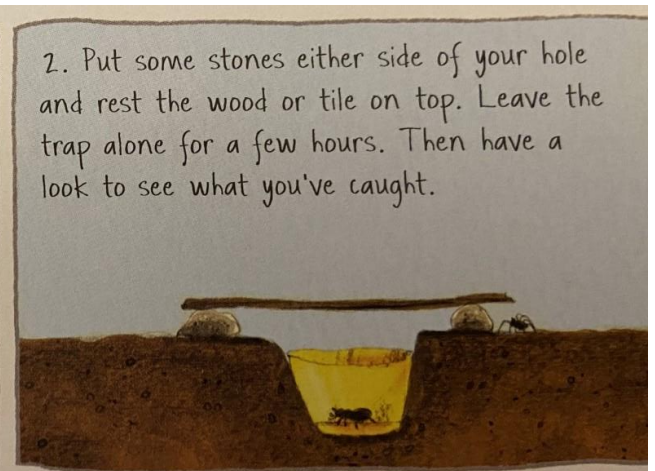 2. Put some stones either side of your hole
and rest the wood or tile on top. Leave the
trap alone for a few hours. Then have a
look to see what you've caught.